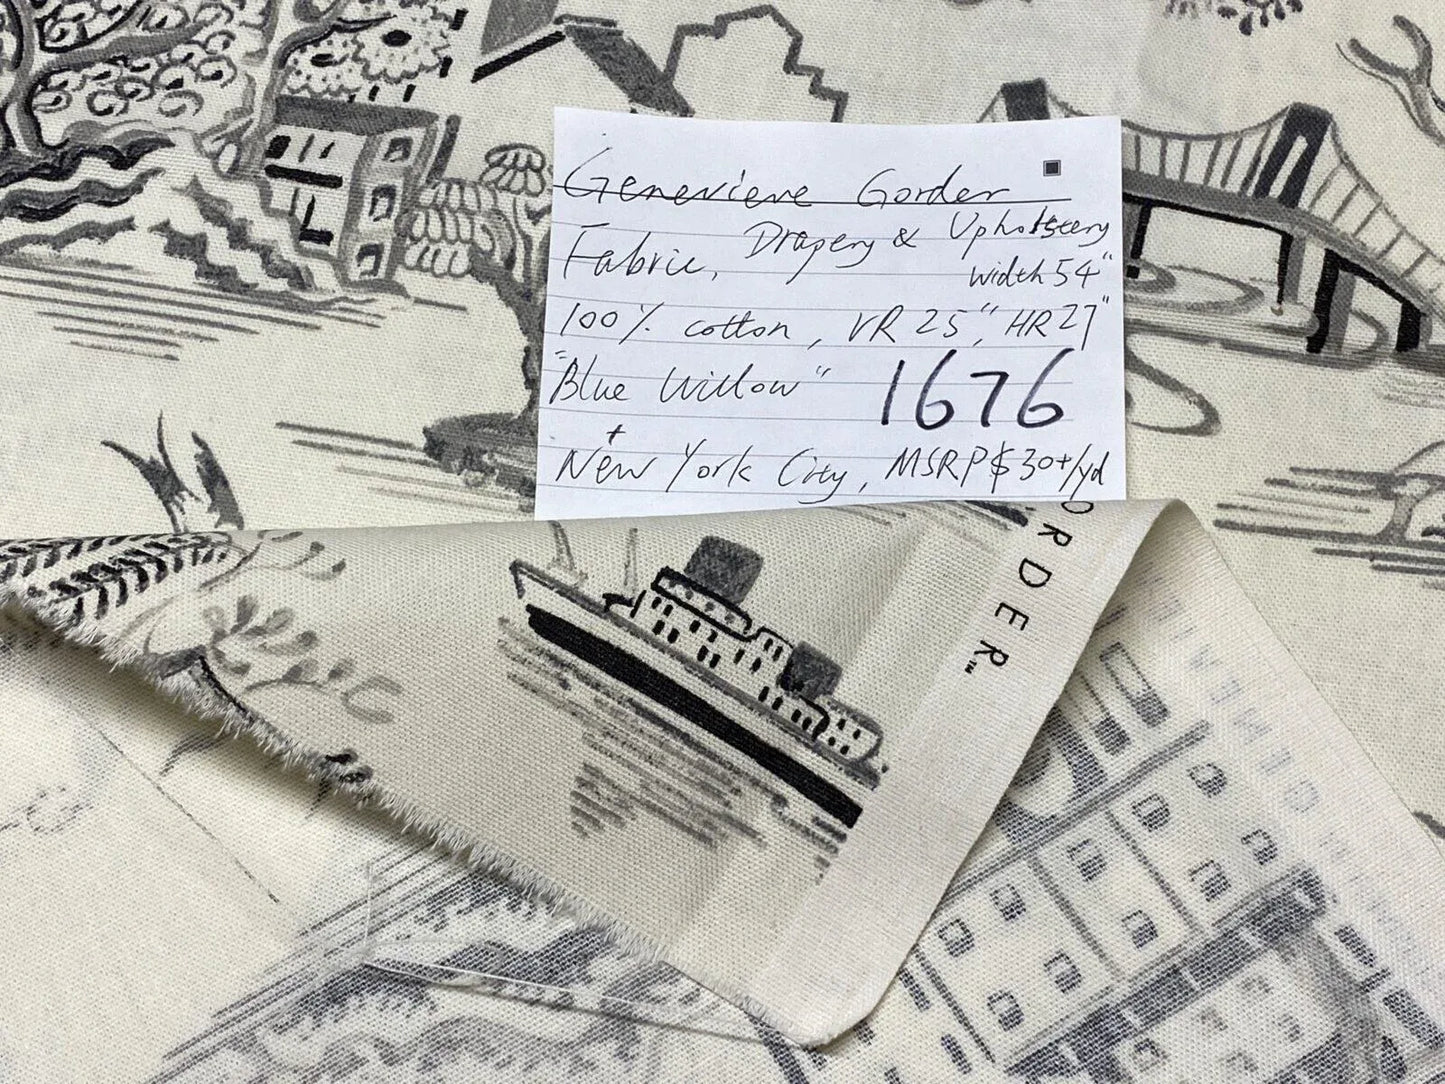 Genevieve Gorder
Fabric, Drapery & Upholstery
width 54"
100% cotton, VR 25", HR 27"
"Blue Willow" 1676
+
New York City, MSRP $30+/yd
ORDER™